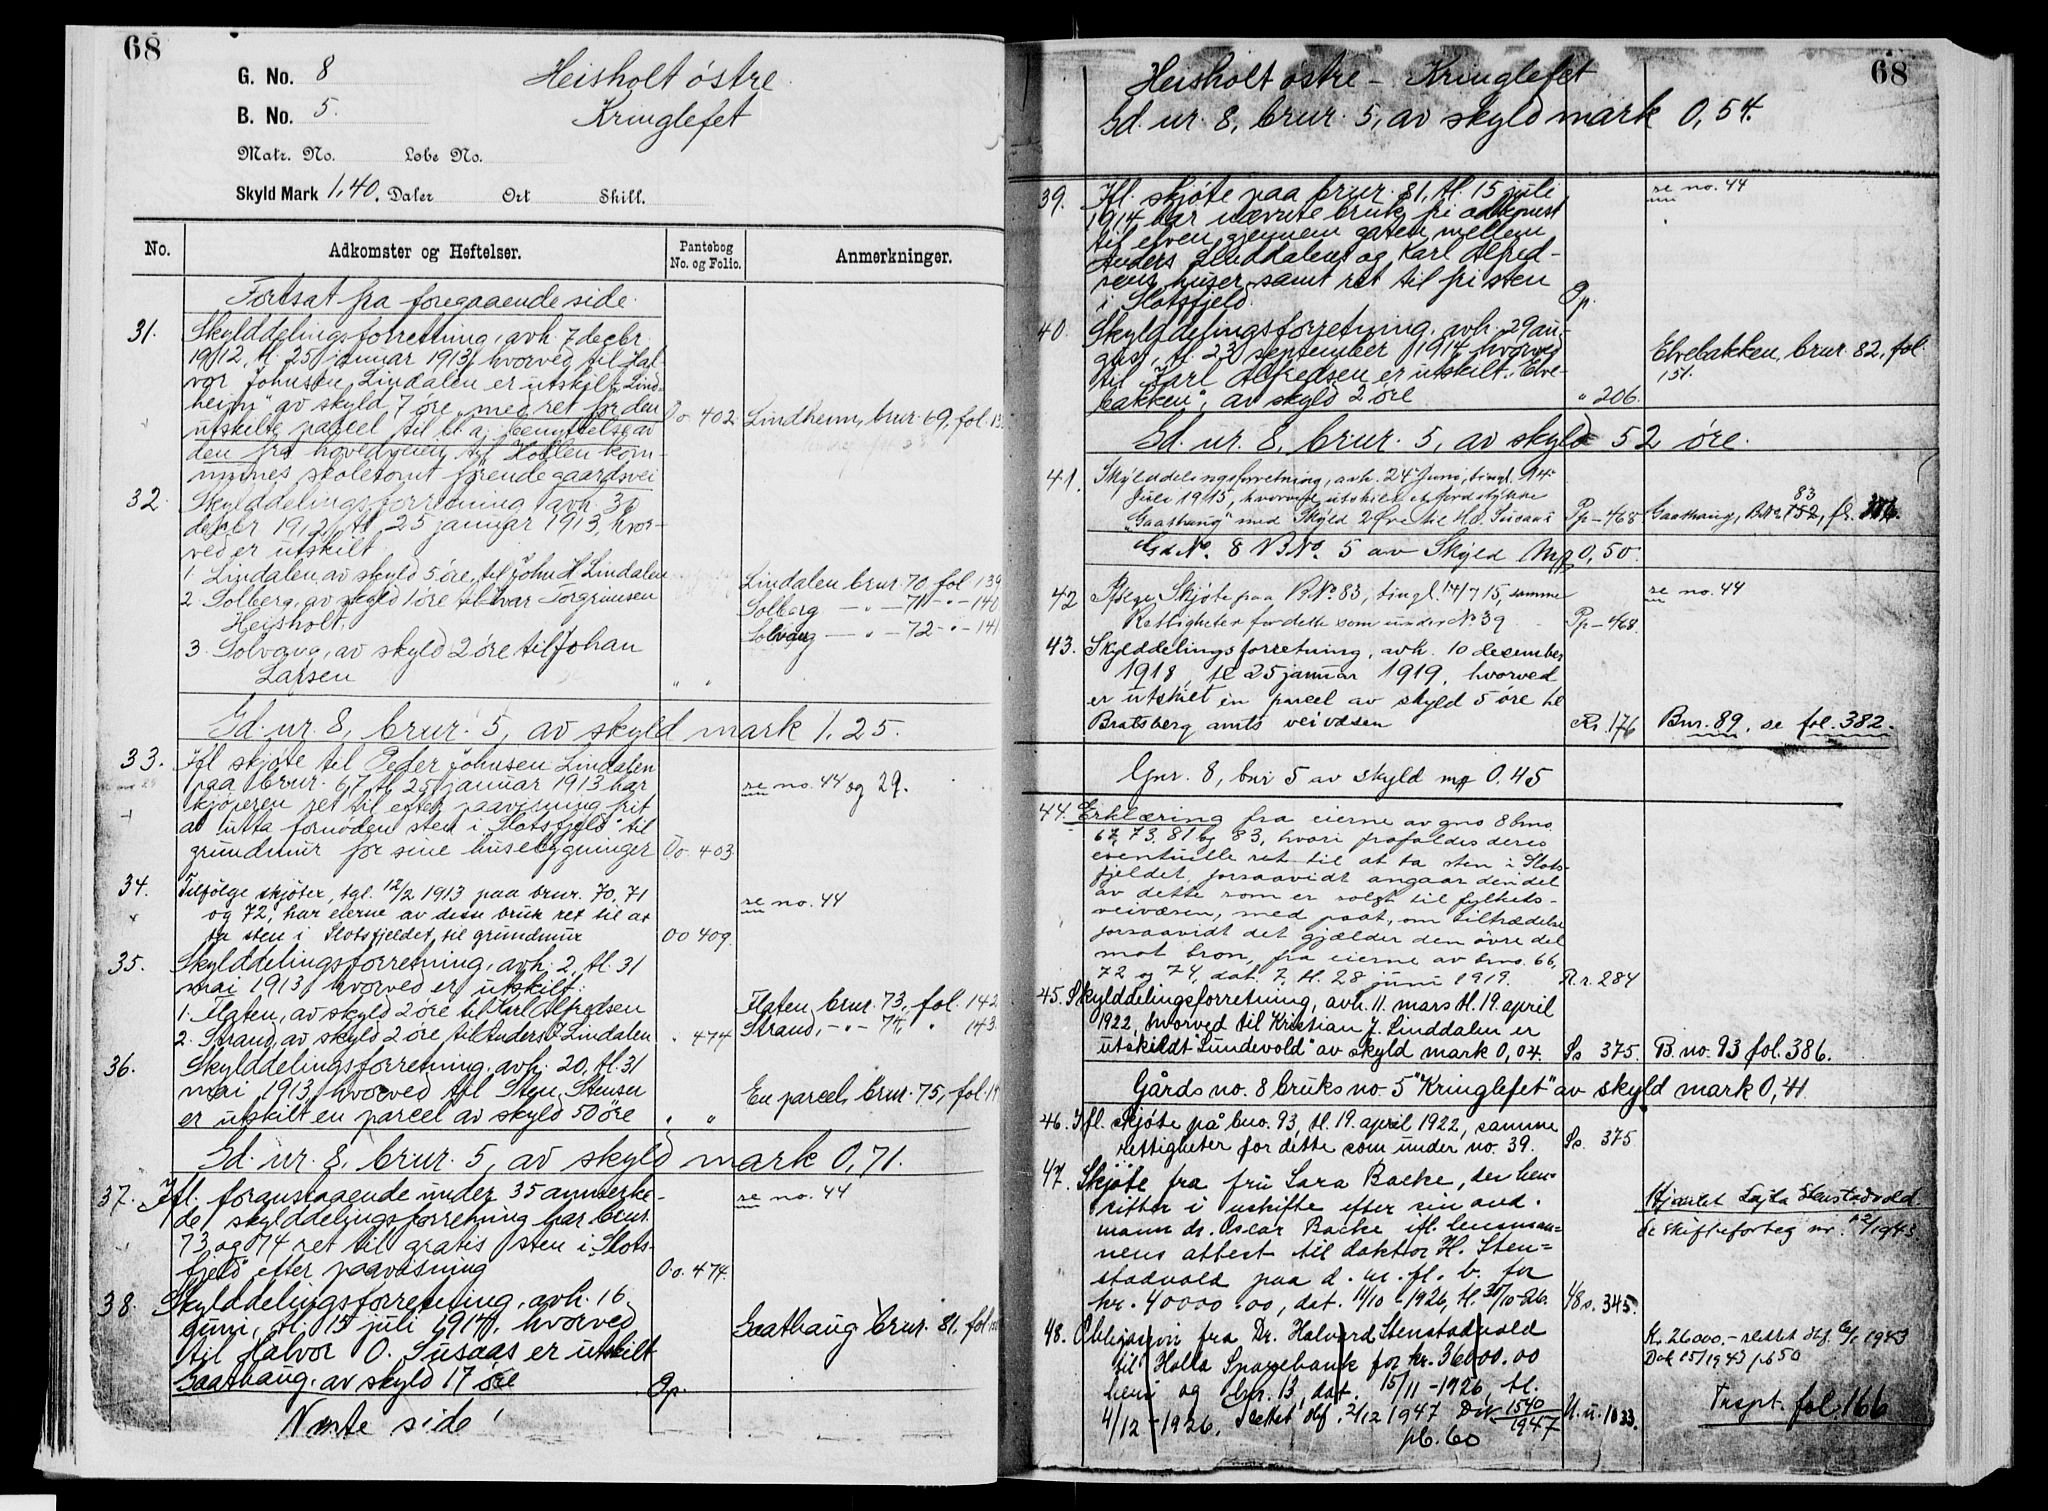 68
G. No. 8
Heisholt østre
B. No. 5.
Kringlefet
Matr. No. Løbe No.
Skyld Mark 1,40. Daler Ort Skill.
No. Adkomster og Heftelser. Pantebog No. og Folio. Anmerkninger.
Fortsat fra foregaaende side.
31. Skylddelingsforretning, avh. 7 decbr.
1912, tl. 25 januar 1913, hvorved til Hal-
vor Johnsen Lindalen er utskilt „Lind-
heim" av skyld 7 øre, med ret for den
utskilte parcel til bl. a. benyttelse av
Oo 402. Lindheim, brnr. 69, fol. 13
den fra hovedveien til Hollen kom-
munes skoletomt førende gaardsvei
32. Skylddelingsforretning avh. 30
decbr 1912, tl. 25 januar 1913, hvor-
ved er utskilt
1. Lindalen, av skyld 5 øre, til John H. Lindalen
Lindalen brnr. 70 fol 139
2. Solberg, av skyld 1 øre til Ivar Torgrimsen
Heisholt.
Solberg — " — 71 — " — 140
3. Solvang, av skyld 2 øre til Johan
Larsen
Solvang — " — 72 — " — 141
" "
Gd. nr. 8, brnr. 5, av skyld mark 1,25.
33. Ifl. skjøte til Peder Johnsen Lindalen
paa brnr. 67, tl. 25 januar 1913 har
se no. 44 og 29.
kjøperen ret til efter paavisning frit
at utta fornøden sten i „Slotsfjeld" til
grundmur for sine husebygninger
Oo. 403.
34. Tilfølge skjøter, tgl. 12/2 1913 paa brnr. 70, 71
og 72, har eierne av disse bruk ret til at
se no. 44
ta sten i Slotsfjeldet til grundmur
Oo 409.
35. Skylddelingsforretning, avh. 2, tl. 31
mai 1913, hvorved er utskilt:
1. Flaten, av skyld 2 øre til Karl Alfredsen
Flaten, brnr. 73, fol. 142
2. Strand, av skyld 2 øre til Anders J. Lindalen
" 474 Strand, — " — 74, " 143.
36. Skylddelingsforretning, avh. 20, tl. 31
mai 1913, hvorved til Sten Stensen
En parcel, brnr. 75, fol. 1
er utskilt en parcel av skyld 50 øre
" "
Gd. nr. 8, brnr. 5, av skyld mark 0,71.
37. Ifl. foranstaaende under 35 anmerke-
de skylddelingsforretning har brnr.
se no. 44
73 og 74 ret til gratis sten i „Slots-
fjeld" efter paavisning
Oo. 474.
38. Skylddelingsforretning, avh. 16
juni, tl. 15 juli 1914, hvorved
til Halvor O. Susaas er utskilt
Gaathaug brnr. 81, fol
Gaathaug, av skyld 17 øre
Pp.
Næste side!
68
Heisholt østre — Kringlefet
Gd. nr. 8, brnr. 5, av skyld mark 0,54.
39. Ifl. skjøte paa brnr. 81, tl. 15 juli
se no. 44
1914 har nævnte bruk fri adkomst
til elven gjennem gaten mellem
Anders Linddalens og Karl Alfred-
sens huser samt ret til fri sten
i Slotsfjeld.
Pp.
40. Skylddelingsforretning, avh. 29 au-
gust, tl. 23 september 1914 hvorved
til Karl Alfredsen er utskilt „Elve-
bakken", av skyld 2 øre
" 206.
Elvebakken, brnr. 82, fol.
151.
Gd. nr. 8, brnr. 5, av skyld 52 øre.
41. Skylddelingsforretning, avh. 24 Juni, tingl. 14
Juli 1915, hvorved utskilt et jordstykke
„Gaathaug" med Skyld 2 Øre til H. O. Susaas
Pp — 468 Gaathaug, BNo 83 152, fl. 376.
Gd No. 8 BNo. 5 av Skyld Mk 0,50.
42 Ifølge Skjøte paa BNo 83, tingl. 14/7 15, samme
se no. 44
Rettigheter for dette som under No 39
Pp — 468
43. Skylddelingsforretning, avh. 10 desember
1918, tl. 25 januar 1919, hvorved
er utskilt en parcel av skyld 5 øre til
Bratsberg amts veivæsen
Rr. 176 Bnr. 89, se fol. 382.
Gnr. 8, bnr 5 av skyld mk 0.45
44. Erklæring fra eierne av gno 8 bno.
67, 73, 81 og 83, hvori frafaldes deres
eventuelle ret til at ta sten i Slots-
fjeldet, forsaavidt angaar den del
av dette som er solgt til fylkets-
veivæsen, med paat. om tiltrædelse
forsaavidt det gjælder den øvre del
mot bron, fra eierne av bno. 66,
72 og 74, dat. ?, tl. 28 juni 1919.
R.r. 284
45. Skylddelingsforretning, avh. 11. mars tl. 19. april
1922, hvorved til Kristian J. Linddalen er
utskildt "Lundevold" av skyld mark 0,04.
Ss 375. B. no. 93 fol. 386.
Gårds no. 8 bruks no. 5 "Kringlefet" av skyld mark 0,41.
46. Ifl. skjøte på bno. 93, tl. 19. april 1922, samme
rettigheter for dette som under no. 39.
Ss. 375.
47. Skjøte fra fru Sara Backe, der hen-
sitter i uskifte efter sin avd.
Hjemlet Lajla Stenstadvold
mann dr. Oscar Backe ifl. lensman-
se skifteforteg nr. /1943.
nens attest til doktor H. Sten-
stadvold paa d. m. fl. b. for
kr. 40000.00, dat. 11/10-1926, tl. 30/10-26.
48s. 345.
48. Obligasjon fra Dr. Halvard Stenstadvold
K. 26000,- slettet dlf. 6/1 1943
til Holla Sparebank for kr. 36000.00
Dok 15/1943 pb 50
heri og bnr. 13, dat. 15/11-1926, tl.
4/12-1926. Slettet dlf. 2/12 1947 Dok 1540/1947
U.u. 1033.
Trspt. fol. 166
pb. 60